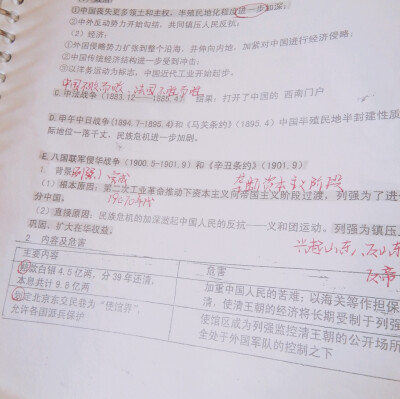 ①中国丧失更多领土和主权,半殖民地化程度进一步加深;
②中外反动势力开始勾结,共同镇压人民反抗;
(2)经济:
①外国侵略势力扩张到整个沿海,并伸向内地,加紧对中国进行经济侵略;
②中国传统经济结构进一步受到冲击;
③以洋务运动为标志,中国近代工业开始起步。
中国不败而败,法国不胜而胜
C. 中法战争(1883.12——1885.4) 结果:打开了中国的 西南门户
D. 甲午中日战争(1894.7-1895.4)和《马关条约》(1895.4)中国半殖民地半封建性质
际地位一落千丈,民族危机进一步加剧。
E. 八国联军侵华战争(1900.5-1901.9)和《辛丑条约》(1901.9)
1. 背景
垄断资本主义阶段
(1)根本原因:第二次工业革命推动下资本主义向帝国主义阶段过渡,列强为了进
分中国;
(2)直接原因:民族危机的加深激起中国人民的反抗——义和团运动。列强为镇压
巩固、扩大在华权益。
兴起山东,
2 内容及危害
主要内容
危害
赔款白银4.5亿两,分39年还清,
本息共计9.8亿两
加重中国人民的苦难;以海关等作担保
清,使清王朝的经济将长期受制于列强
划定北京东交民巷为“使馆界”,
允许各国派兵保护
使馆区成为列强监控清王朝的公开场所
全处于外国军队的控制之下